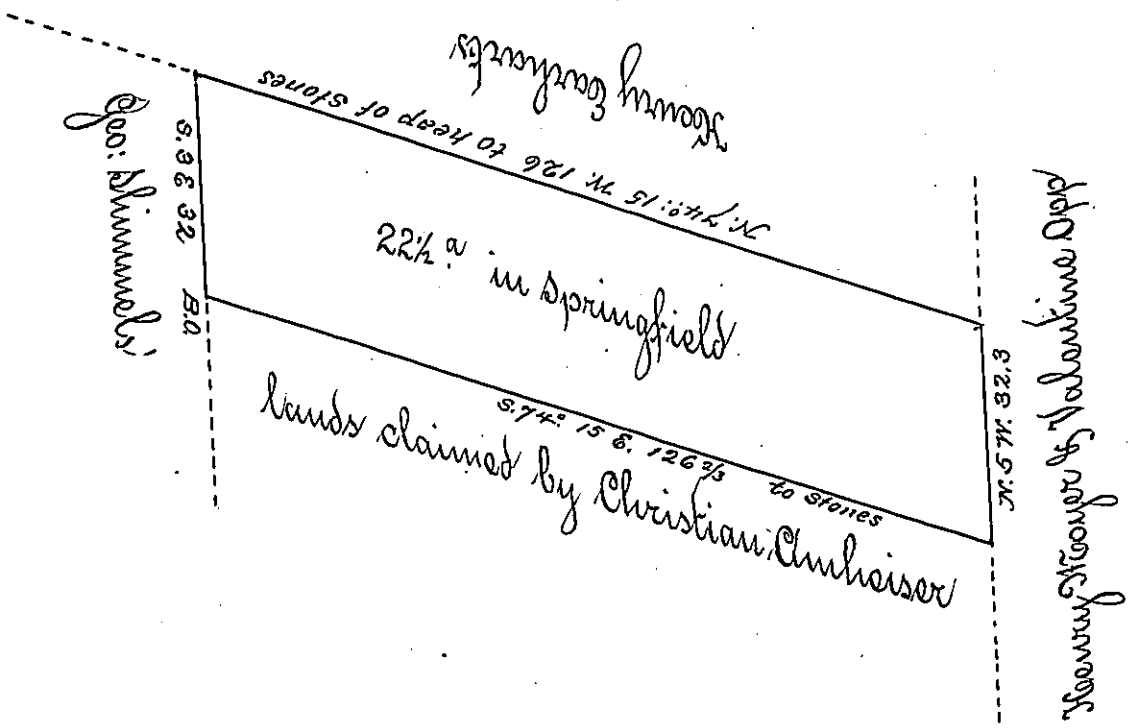 Henry Earharts
N. 74°: 15 W. 126 to heap of stones
Geo: Shimmels'
S. 3 E 32
B.O.
22½ a in Springfield
S. 74° 15 E. 126 2/3 to stones
lands claimed by Christian Amheiser
N. 5 W. 32.3
Henry & Valentine Opp